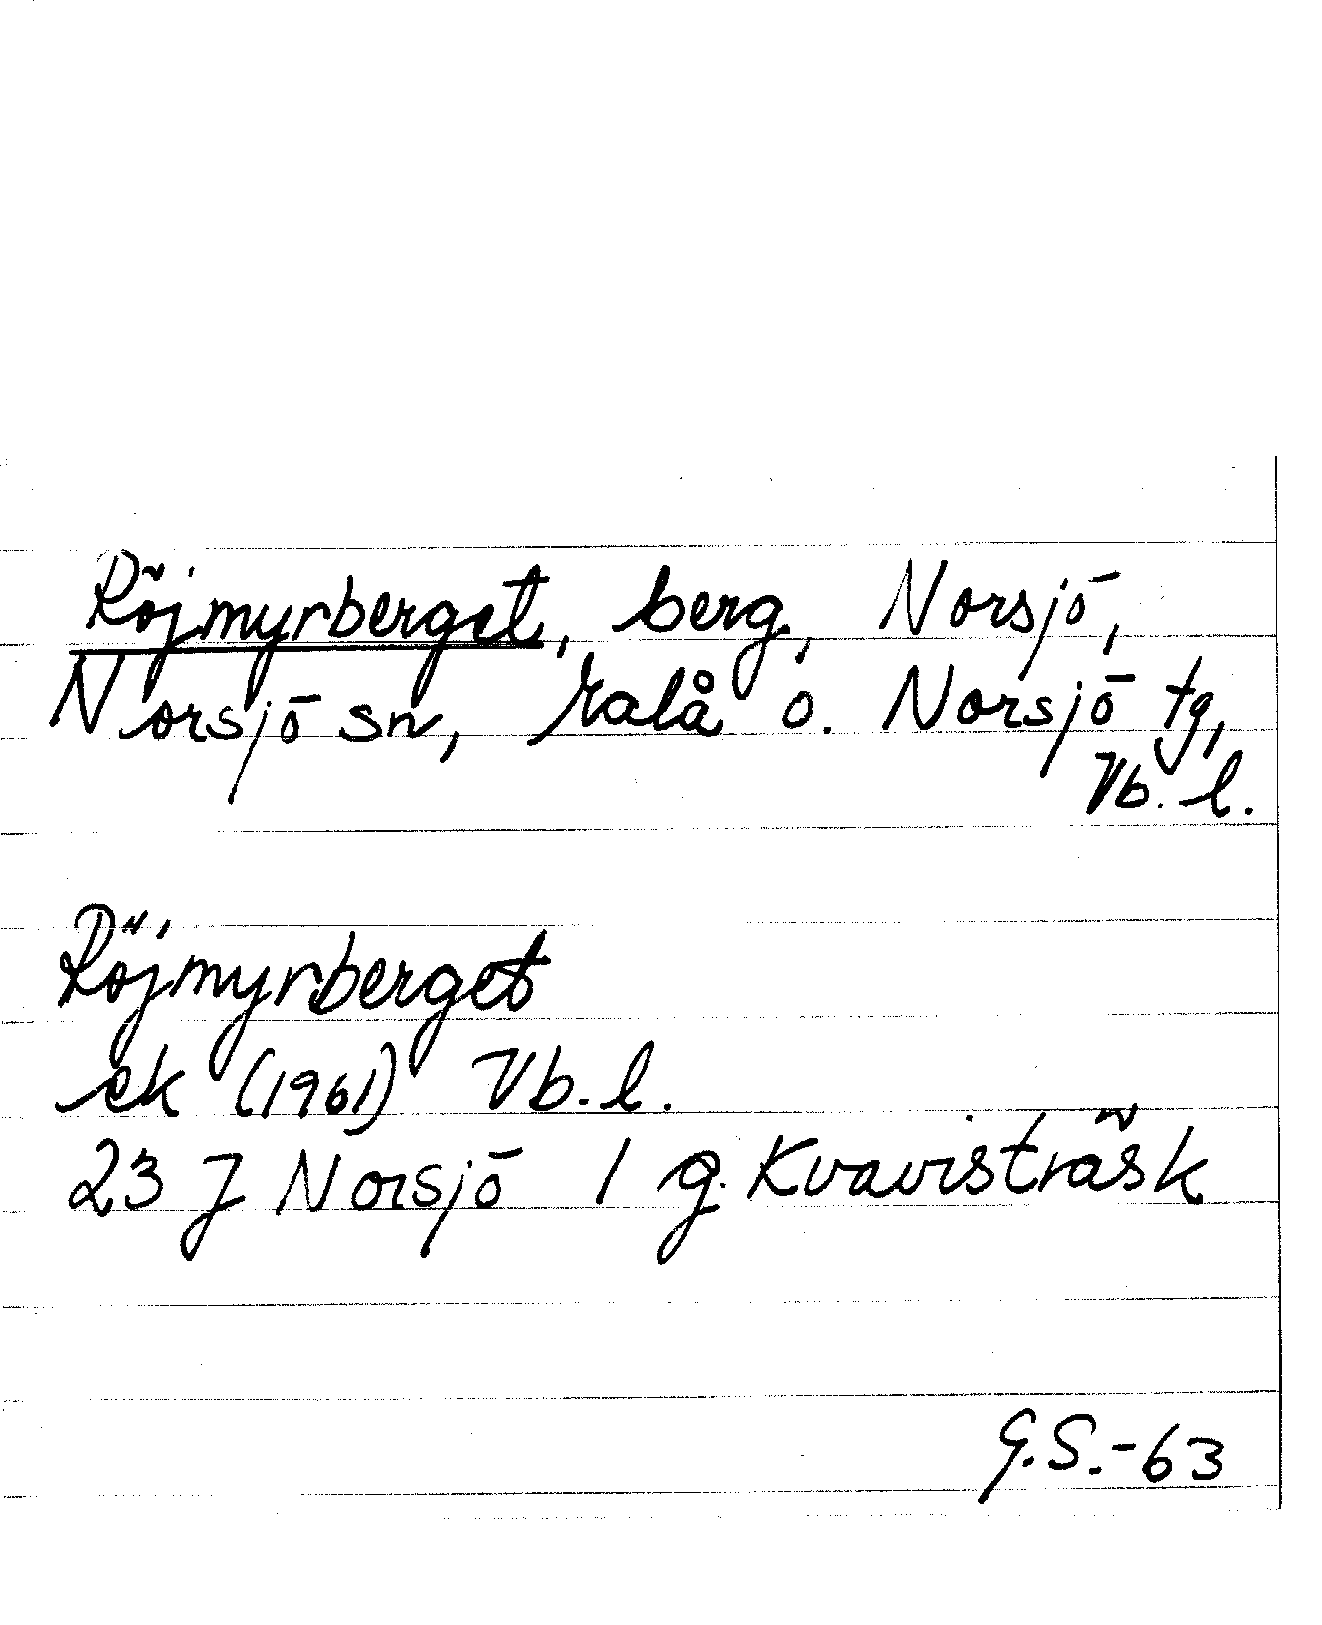 Röjmyrberget, berg, Norsjö,
Norsjö sn, Malå o. Norsjö tg,
Vb. l.
Röjmyrberget
ek (1961) Vb. l.
23 J Norsjö 1 g. Kvavisträsk
G.S.-63